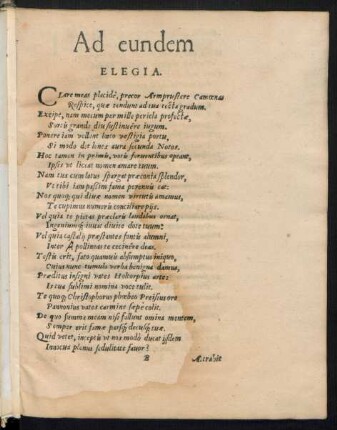 Ad eundem
ELEGIA.
CLare meas placidè, precor Armpruster Camœnas
Respice, quæ tendunt ad tua tecta gradum.
Excipe, nam mecum per mille pericla profectæ,
Sortis grande diu sustinuêre iugum.
Ponere iam vellent læto vestigia portu,
Si modo det lenes aura secunda Notos.
Hoc tamen in primis, votis feruentibus optant,
Ipsis te liceat nomen amare tuum.
Nam tuus cum latus spargat præconia splendor,
Ve tibi iam passim fama perennis eat:
Nos quoq; qui diuæ nomen virtutis amamus,
Te cupimus numeris conciliare pijs.
Vel quia te pietas præclaris laudibus ornat,
Ingeniumq; iuuas diuite dote tuum:
Vel quia castalij præstantes fontis alumni,
Inter Apollineas te cecinêre deas.
Testis erit, fato quamuis absumptus iniquo,
Cuius nunc tumulo verba benigna damus,
Præditus insigni vates Holtorphius arte:
Is tua sublimi nomina voce tulit.
Te quoq; Christophorus phœbeo Preisius ore
Pannonius vates carmine sæpè colit.
De quo summa meam nisi fallunt omina mentem,
Semper erit famæ parsq; decusq; tuæ.
Quid vetet, ineptis ut nos modò ducat ijsdem
Inuictus plenus sedulitate fauor?
B Attrahit